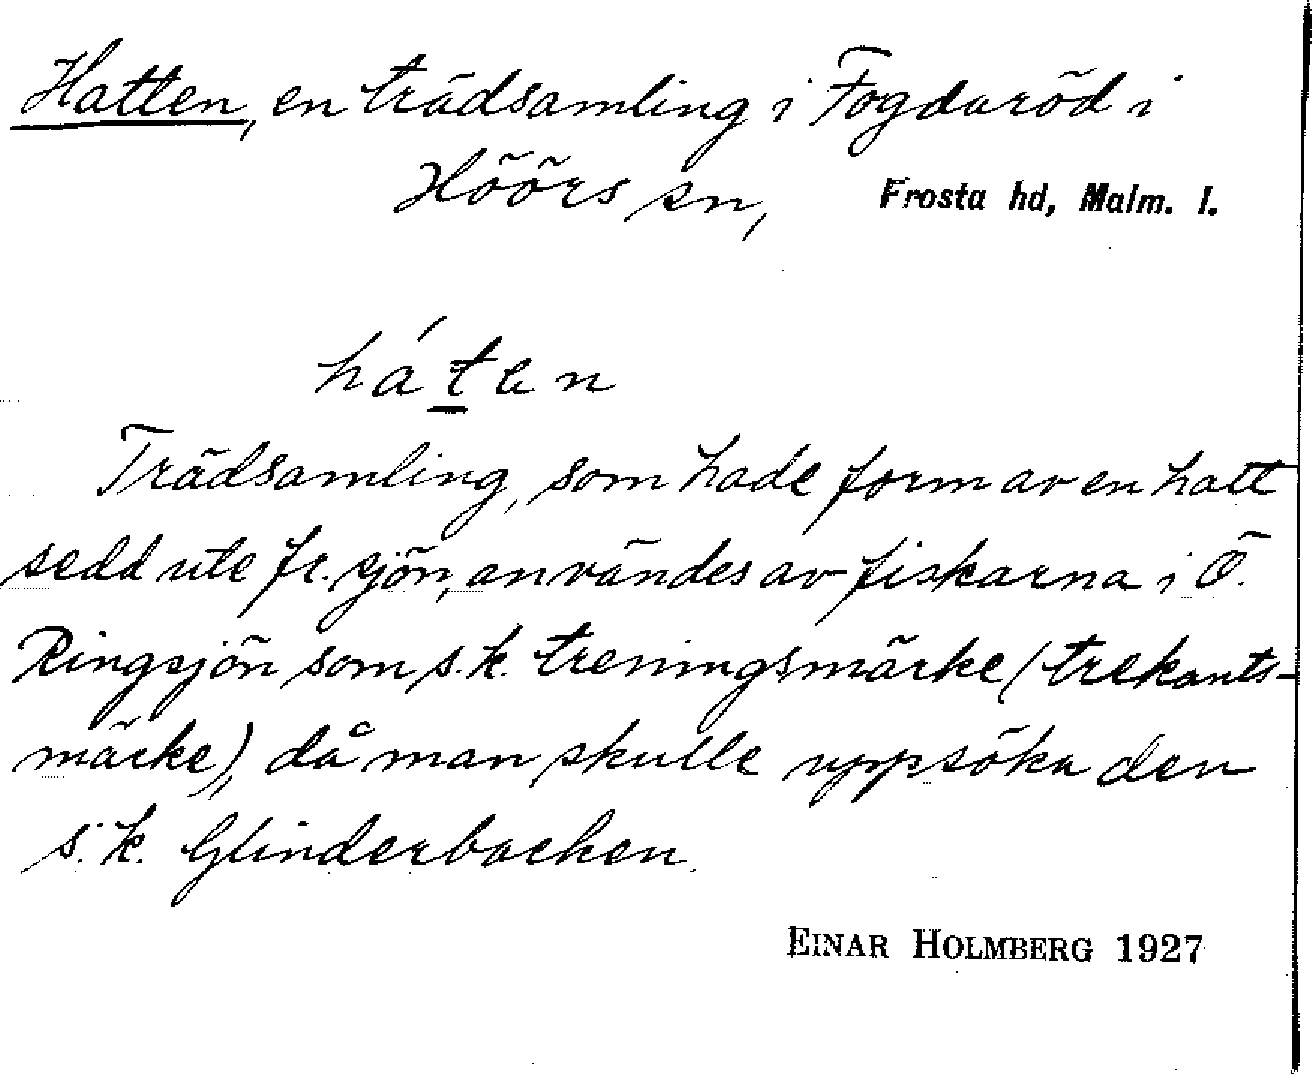 Hatten, en trädsamling i Fogdaröd i
Höörs sn, Frosta hd, Malm. l.
háten
Trädsamling, som hade form av en hatt
sedd ute fr. sjön, användes av fiskarna i Ö.
Ringsjön som s.k. treningsmärke (trekants-
märke), då man skulle uppsöka den
s.k. Glinderbacken.
EINAR HOLMBERG 1927